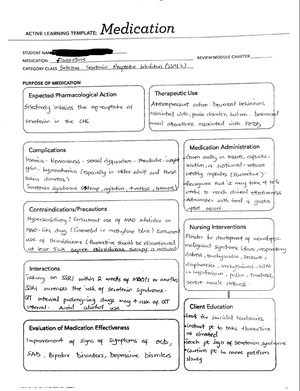 ACTIVE LEARNING TEMPLATE: Medication
STUDENT NAME
MEDICATION Fluoxetine
REVIEW MODULE CHAPTER
CATEGORY CLASS Selective Serotonin Reuptake Inhibitors (SSRIs)
PURPOSE OF MEDICATION
Expected Pharmacological Action
Selectively inhibits the reuptake of
serotonin in the CNS
Therapeutic Use
Antidepressant action decreased behaviors
associated with panic disorder, bulimia decreased
mood alterations associated with PMDD
Complications
Insomnia - Nervousness - sexual dysfunction - Headache - weight
gain, hyponatremia (especially in older adult and those
taking diuretics)
Serotonin syndrome (
Medication Administration
Given orally in tablets, capsules,
solution, or sustained-release
weekly capsules (fluoxetine)
may take
weeks to reach clinical effectiveness
Administer with food if gastric
upset occurs
Contraindications/Precautions
Hypersensitivity: Concurrent use of MAO inhibitor or
MAO-like drugs (linezolid or methylene blue) concurrent
use of thioridazine (fluoxetine should be discontinued
at least 5 wk
Nursing Interventions
Monitor for development of neuroleptic
malignant syndrome (fever, respiratory
distress, tachycardia, seizures,
diaphoresis,
hypotension, pallor, tiredness,
severe muscle stiffness
Interactions
Taking an SSRI within 2 weeks of MAOI or another
SSRI increases the risk of serotonin syndrome.
QT interval prolonging drugs may ↑ risk of QT
interval. Avoid use
Client Education
for suicidal tendencies
Instruct pt to take fluoxetine
as directed
Teach pt sign of serotonin syndrome
Caution pt to move position
slowly
Evaluation of Medication Effectiveness
Improvement of sign of symptoms of OCD,
SAD, Bipolar Disorders, Depressive disorders